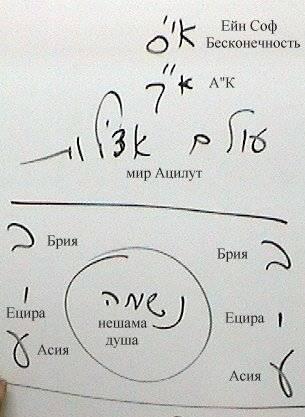 א"ס Ейн Соф
Бесконечность
א"ק А"К
עולם אצילות
мир Ацилут
ב Брия
Брия ב
נשמה
нешама
душа
י Ецира
Ецира י
ע Асия
Асия ע